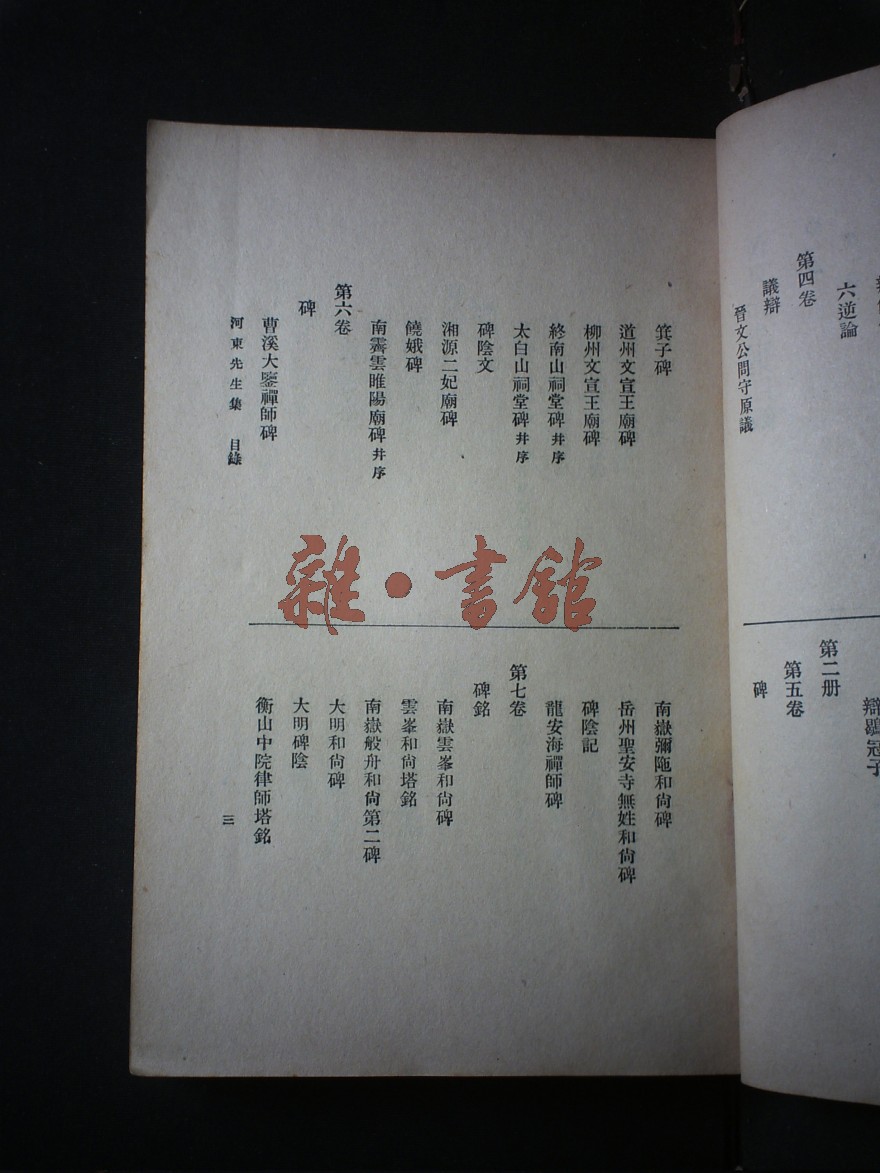 六逆論
第四卷
議辯
晉文公問守原議
辯鶡冠子
第二册
第五卷
碑
箕子碑
道州文宣王廟碑
柳州文宣王廟碑
終南山祠堂碑幷序
太白山祠堂碑幷序
碑陰文
湘源二妃廟碑
饒娥碑
南霽雲睢陽廟碑幷序
第六卷
碑
曹溪大鑒禪師碑
南嶽彌陁和尙碑
岳州聖安寺無姓和尙碑
碑陰記
龍安海禪師碑
第七卷
碑銘
南嶽雲峯和尙碑
雲峯和尙塔銘
南嶽般舟和尙第二碑
大明和尙碑
大明碑陰
衡山中院律師塔銘
河東先生集 目錄
三
雜·書館